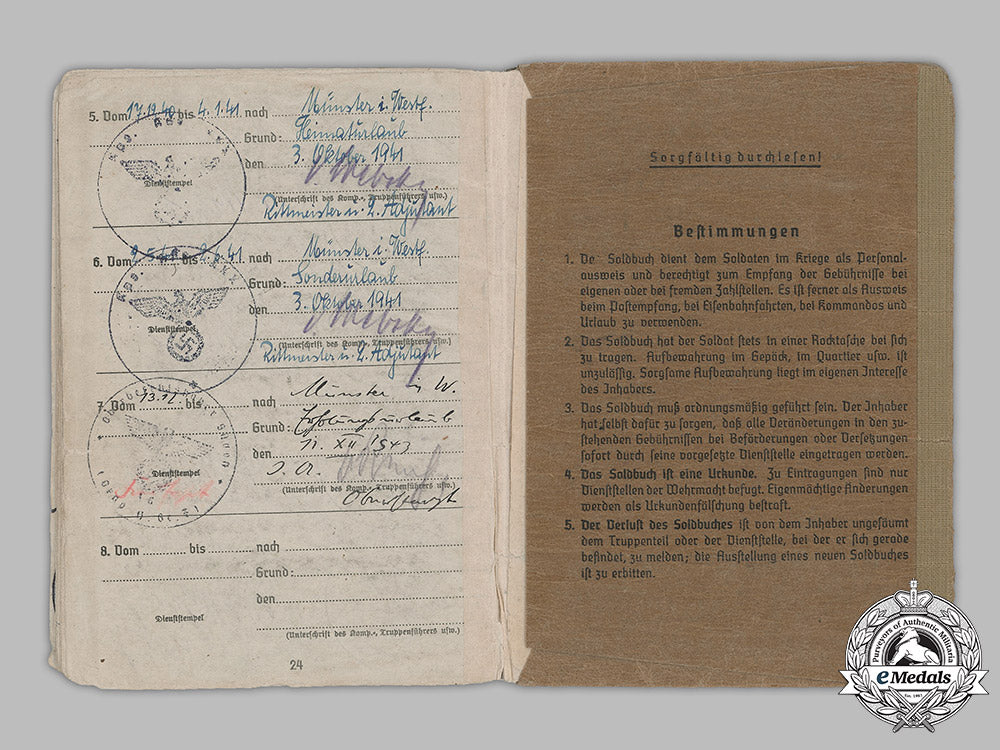 5. Vom 17.12.40 bis 4.1.41 nach Münster i. Westf.
Grund: Heimaturlaub
den 3. Oktober 1941
Dienststempel
(Unterschrift des Komp.-, Truppenführers usw.)
Rittmeister u. 2. Adjutant
6. Vom bis 2.6.41 nach Münster i. Westf.
Grund: Sonderurlaub
den 3. Oktober 1941
Dienststempel
(Unterschrift des Komp.-, Truppenführers usw.)
Rittmeister u. 2. Adjutant
7. Vom 13.12. bis nach Münster i. W.
Grund: Erholungsurlaub
den 11. XII 1943
Dienststempel
(Unterschrift des Komp.-, Truppenführers usw.)
Oberstarzt
8. Vom bis nach
Grund:
den
Dienststempel
(Unterschrift des Komp.-, Truppenführers usw.)
24
Sorgfältig durchlesen!
Bestimmungen
1. De Soldbuch dient dem Soldaten im Kriege als Personal-
ausweis und berechtigt zum Empfang der Gebührnisse bei
eigenen oder bei fremden Zahlstellen. Es ist ferner als Ausweis
beim Postempfang, bei Eisenbahnfahrten, bei Kommandos und
Urlaub zu verwenden.
2. Das Soldbuch hat der Soldat stets in einer Rocktasche bei sich
zu tragen. Aufbewahrung im Gepäck, im Quartier usw. ist
unzulässig. Sorgsame Aufbewahrung liegt im eigenen Interesse
des Inhabers.
3. Das Soldbuch muß ordnungsmäßig geführt sein. Der Inhaber
hat selbst dafür zu sorgen, daß alle Veränderungen in den zu-
stehenden Gebührnissen bei Beförderungen oder Versetzungen
sofort durch seine vorgesetzte Dienststelle eingetragen werden.
4. Das Soldbuch ist eine Urkunde. Zu Eintragungen sind nur
Dienststellen der Wehrmacht befugt. Eigenmächtige Änderungen
werden als Urkundenfälschung bestraft.
5. Der Verlust des Soldbuches ist von dem Inhaber ungesäumt
dem Truppenteil oder der Dienststelle, bei der er sich gerade
befindet, zu melden; die Ausstellung eines neuen Soldbuches
ist zu erbitten.
Purveyors of Authentic Militaria
eMedals